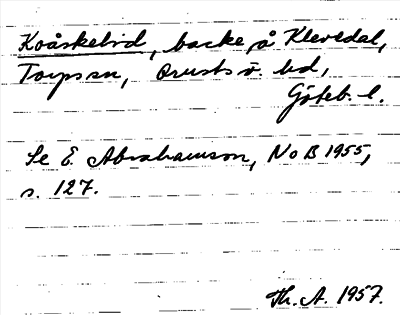 Koåskelid, backe å Klevedal,
Torps sn, Orusts v. hd,
Göteb. l.
Se E. Abrahamson, NoB 1955,
s. 127.
Th. A. 1957.